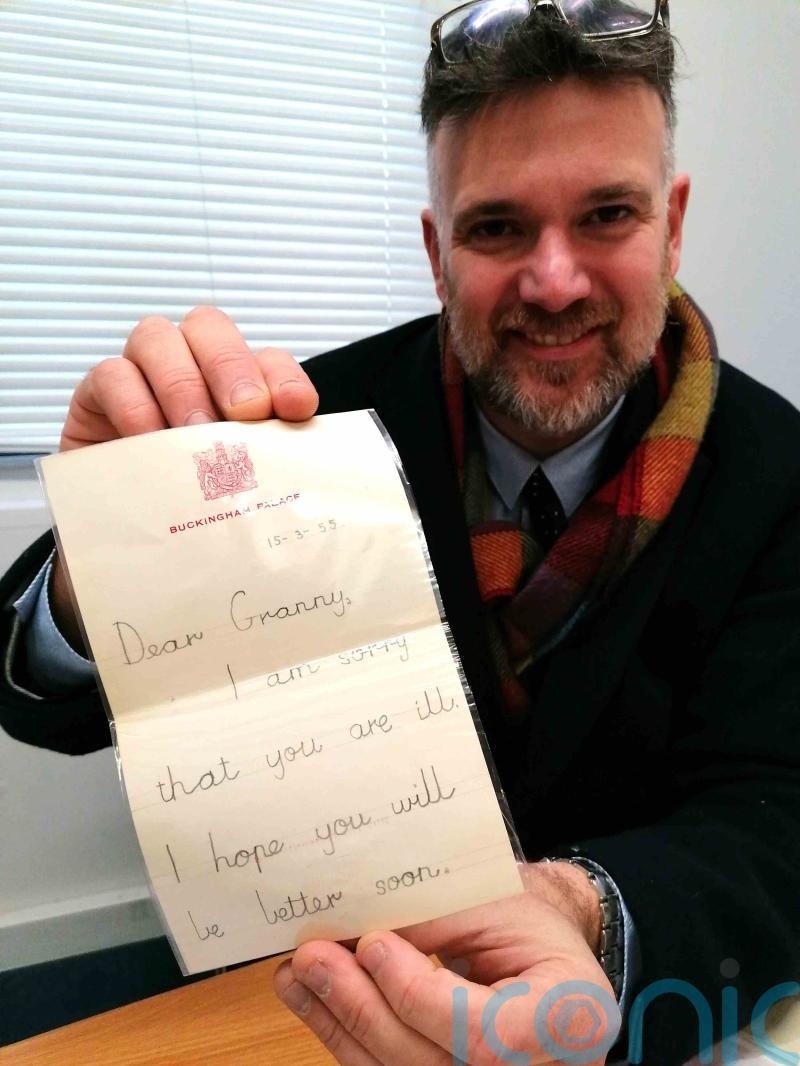 BUCKINGHAM PALACE
15-3-55.
Dear Granny,
I am sorry
that you are ill.
I hope you will
be better soon.
iconic